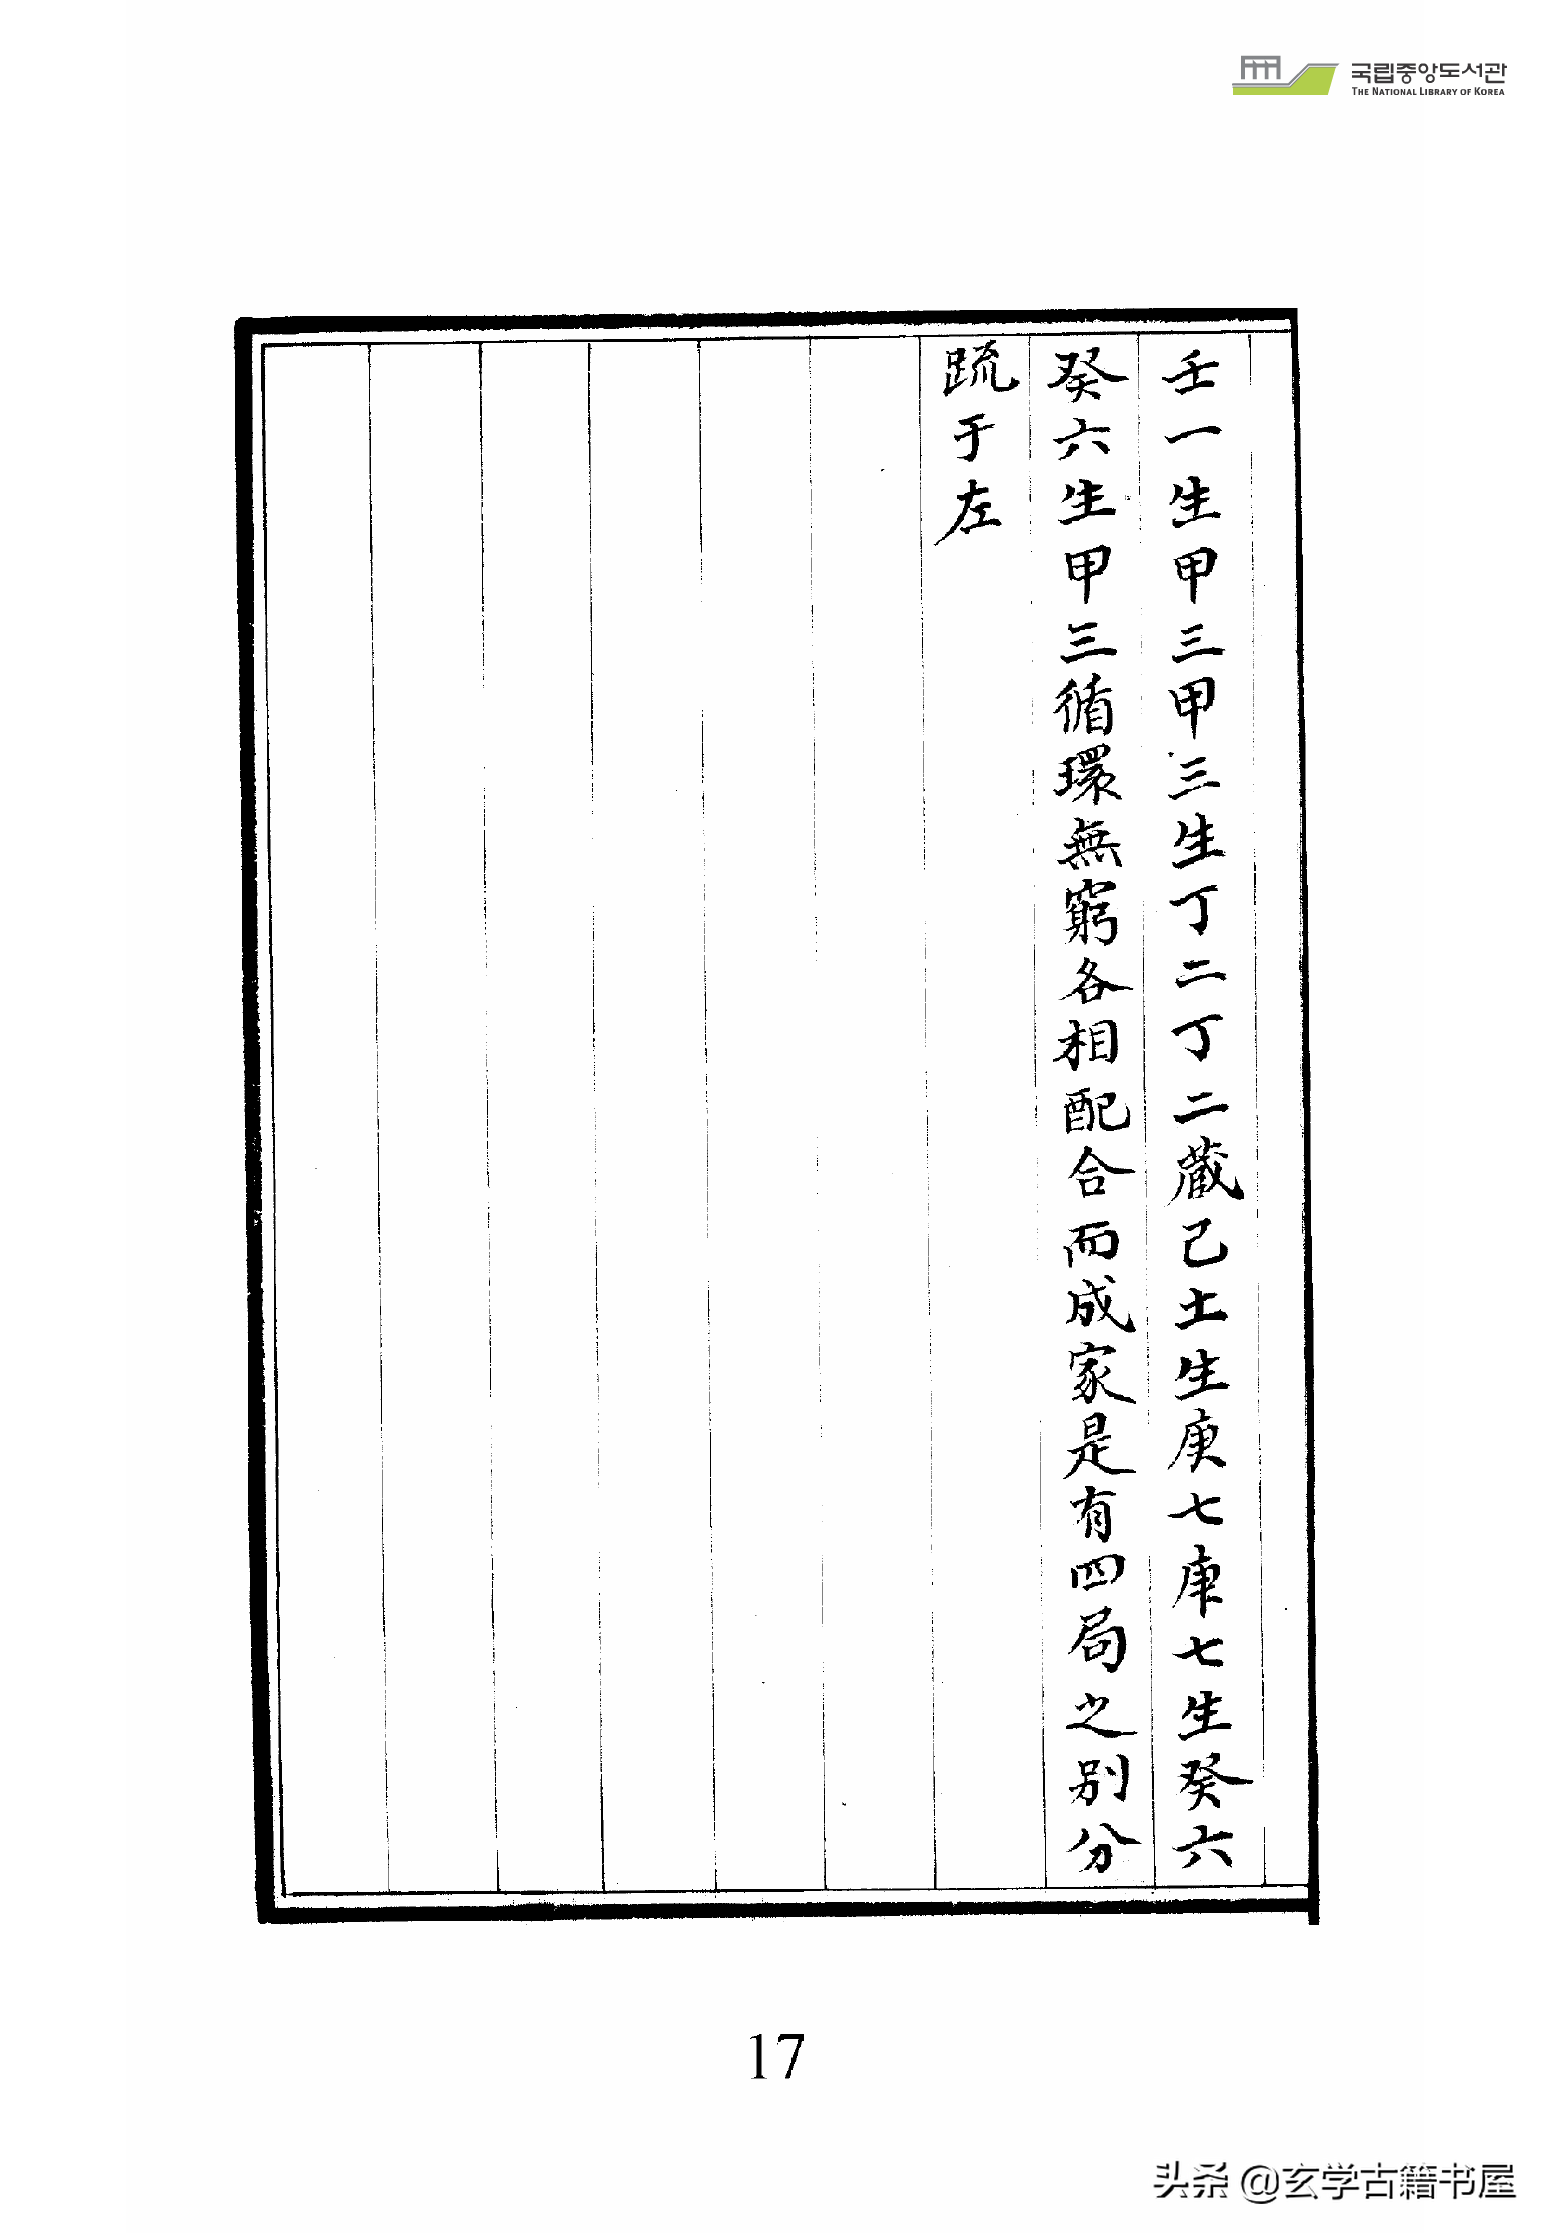 국립중앙도서관
THE NATIONAL LIBRARY OF KOREA
壬一生甲三甲三生丁二丁二藏己土生庚七庚七生癸六
癸六生甲三循環無窮各相配合而成家是有四局之別分
䟽于左
17
头条 @玄学古籍书屋